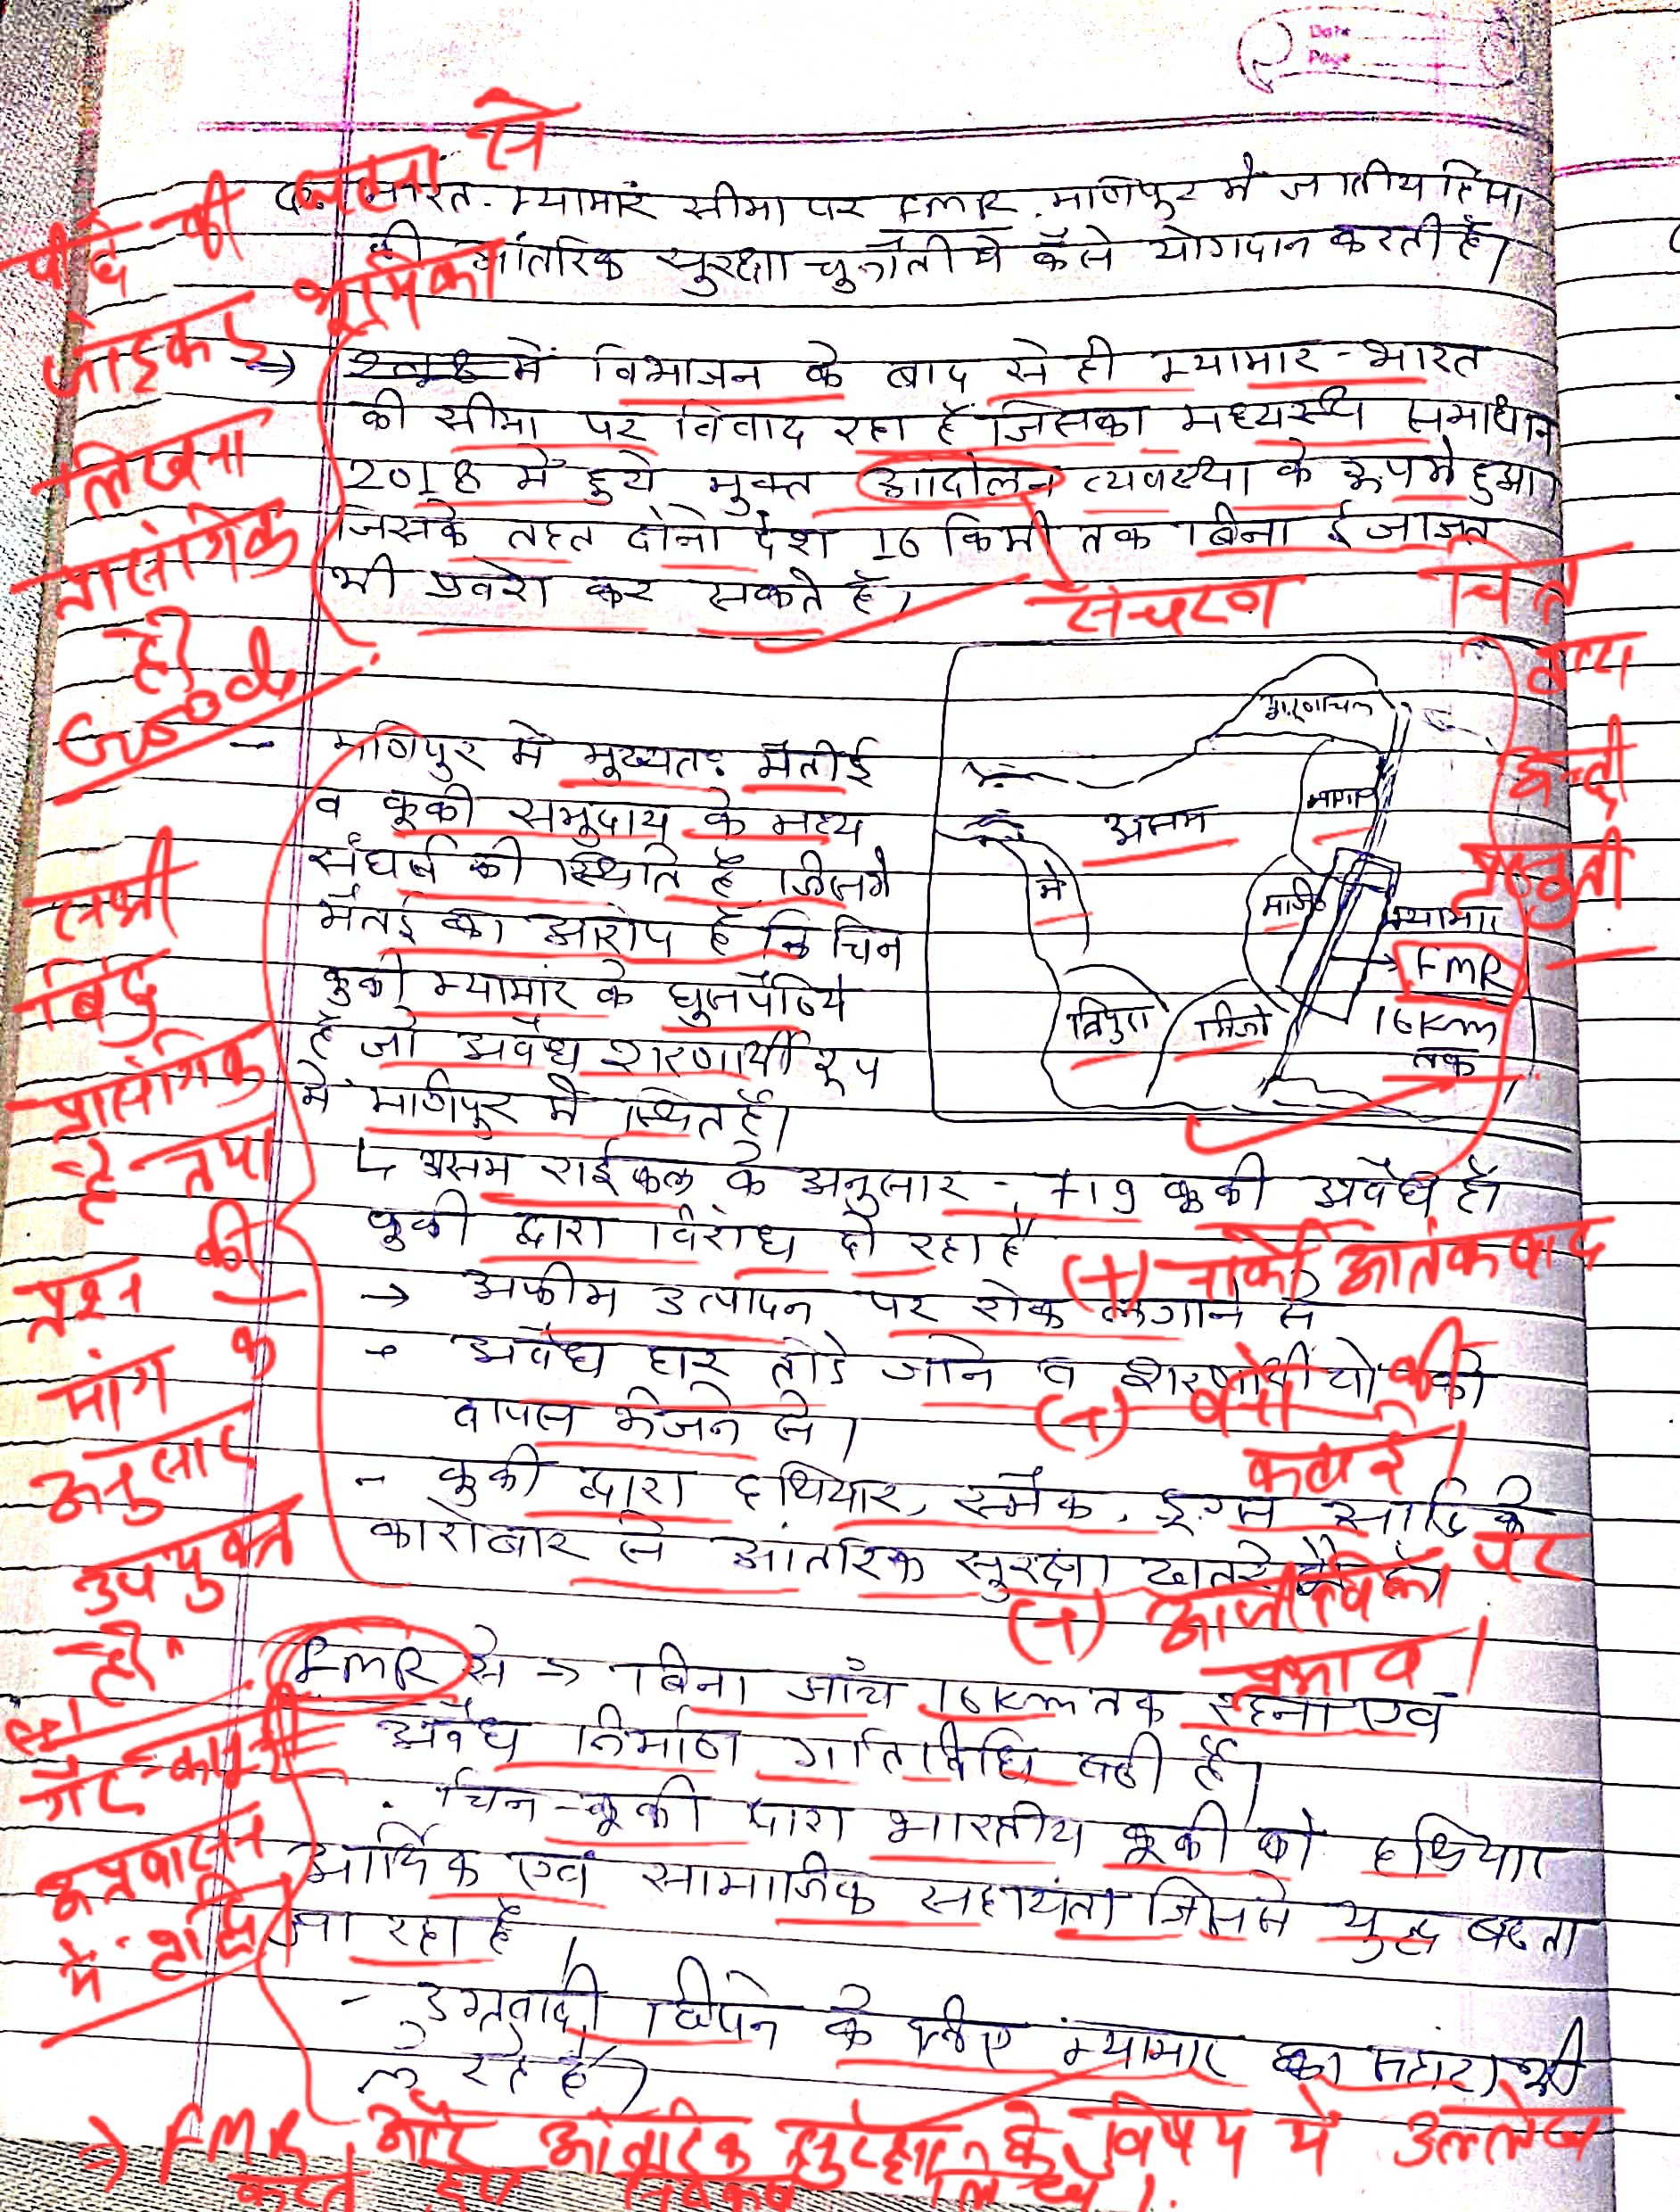 Date
Page
भारत-म्यामार सीमा पर FMR, मणिपुर में जातीय हिंसा
की आंतरिक सुरक्षा चुनौती में कैसे योगदान करती है।
पीछे की घटना से
जोड़कर भूमिका
लिखना
प्रासंगिक
है।
Good
→ में विभाजन के बाद से ही म्यामार-भारत
की सीमा पर विवाद रहा है जिसका मध्यस्थ समाधान
2018 में हुये मुक्त आदोलन व्यवस्था के रूप में हुआ।
जिसके तहत दोनो देश 16 किमी तक बिना ईजाजत
भी प्रवेश कर सकते है।
संचरण
चित्र
अच्छी
प्रस्तुती
- मणिपुर में मुख्यतः मैतीई
व कूकी समुदाय के मध्य
संघर्ष की स्थिति है जिसमे
मैतई का आरोप है कि चिन
कुकी म्यामांर के घुसपैठिये
है जो अवैध शरणार्थी रूप
में मणिपुर में स्थित है।
अरुणाचल
असम
नागा
मे
मणि
म्यामार
FMR
16Km
तक
त्रिपुरा
मिजो
सभी
बिंदु
प्रासंगिक
है तथा
प्रश्न की
मांग के
अनुसार
उपयुक्त
है।
↳ असम राईफल के अनुसार - 719 कूकी अवैध है।
कुकी द्वारा विरोध हो रहा है
(+) नार्को आतंकवाद
→ अफीम उत्पादन पर रोक लगाने से
- अवैध घर तोडे जाने व शरणार्थीयो को
वापस भेजने से।
(+) वनों की
कटाई।
- कुकी द्वारा हथियार, स्मैक, ड्रग्स आदि के
कारोबार से आंतरिक सुरक्षा खतरे में है।
(+) आजीविका पर
प्रभाव।
FMR से → बिना जाँच 16Km तक रहना एवं
अवैध निर्माण गतिविधि बढी है।
गैर-कानूनी
अप्रवासन
में वृद्धि
. चिन-कूकी द्वारा भारतीय कूकी को हथियार
आर्थिक एवं सामाजिक सहायता जिससे युद्ध बढता
जा रहा है।
- उग्रवादी छिपने के लिए म्यामार का सहारा भी
ले रहे है।
→ FMR और आंतरिक सुरक्षा के विषय में उल्लेख
करते हुए निष्कर्ष लिखें।